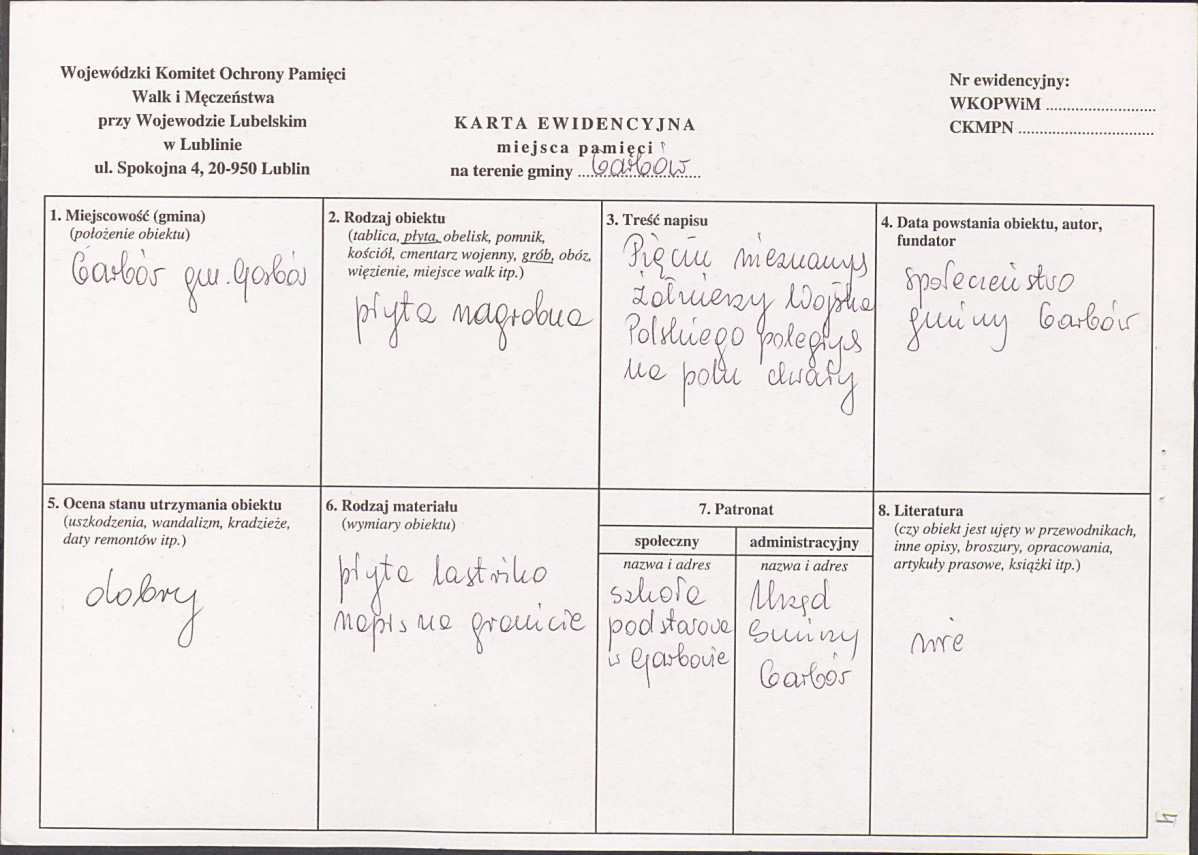 Wojewódzki Komitet Ochrony Pamięci
Walk i Męczeństwa
przy Wojewodzie Lubelskim
w Lublinie
ul. Spokojna 4, 20-950 Lublin
KARTA EWIDENCYJNA
miejsca pamięci
na terenie gminy Garbów
Nr ewidencyjny:
WKOPWiM ...........................
CKMPN .................................
1. Miejscowość (gmina)
(położenie obiektu)
Garbów gm. Garbów
2. Rodzaj obiektu
(tablica, płyta, obelisk, pomnik,
kościół, cmentarz wojenny, grób, obóz,
więzienie, miejsce walk itp.)
płyta nagrobna
3. Treść napisu
Pięciu nieznanych
żołnierzy Wojska
Polskiego poległych
na polu chwały
4. Data powstania obiektu, autor,
fundator
społeczeństwo
gminy Garbów
5. Ocena stanu utrzymania obiektu
(uszkodzenia, wandalizm, kradzieże,
daty remontów itp.)
dobry
6. Rodzaj materiału
(wymiary obiektu)
płyta lastriko
napis na granicie
7. Patronat
społeczny
nazwa i adres
szkoła
podstawowa
w Garbowie
administracyjny
nazwa i adres
Urząd
Gminy
Garbów
8. Literatura
(czy obiekt jest ujęty w przewodnikach,
inne opisy, broszury, opracowania,
artykuły prasowe, książki itp.)
nie
4